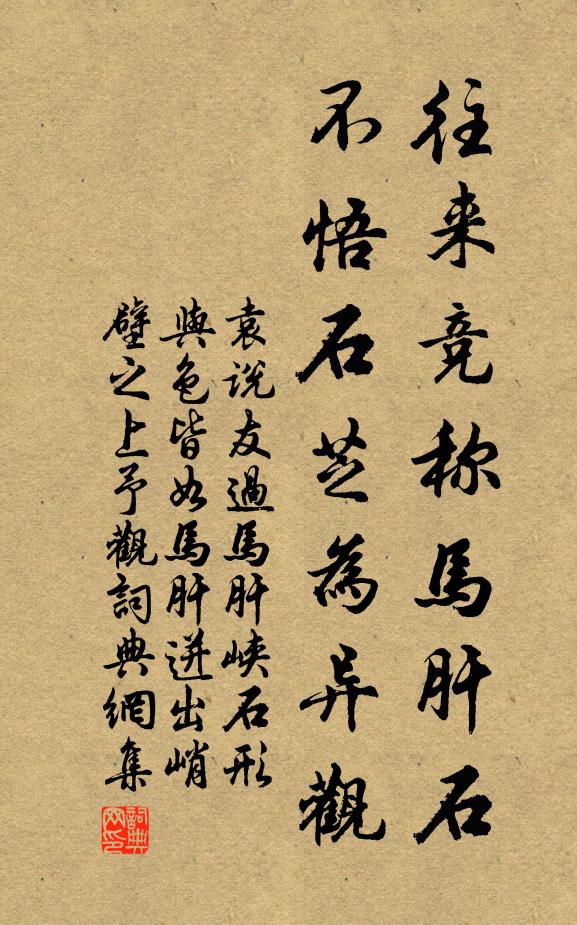 往来竞称馬肝石
不悟石芝為异觀
袁说友過馬肝峡石形
與色皆如馬肝迸出峭
壁之上予觀詞典網集
詞典网印